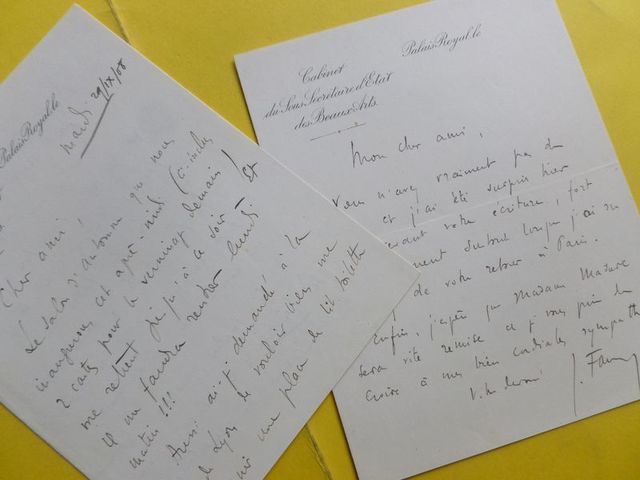 Palais Royal, le
mardi 29/IX/08
Cher ami,
Le Salon d'Automne que nous
inaugurons cet après-midi (ci-inclus
2 cartes pour le vernissage demain)
me retient ici jusqu'à ce soir. Et
il me faudra rentrer lundi
matin !!!
Aussi ai-je demandé à la
de Lyon de vouloir bien me
une place de lit toilette
Cabinet
du Sous Secrétaire d'Etat
des Beaux Arts.
Palais Royal, le
Mon cher ami,
Vous n'avez vraiment pas de
et j'ai été surpris hier
votre écriture, fort
surtout lorsque j'ai su
de votre retour à Paris.
Enfin, j'espère que Madame
sera vite remise et vous prie de
croire à mes bien cordiales sympathies